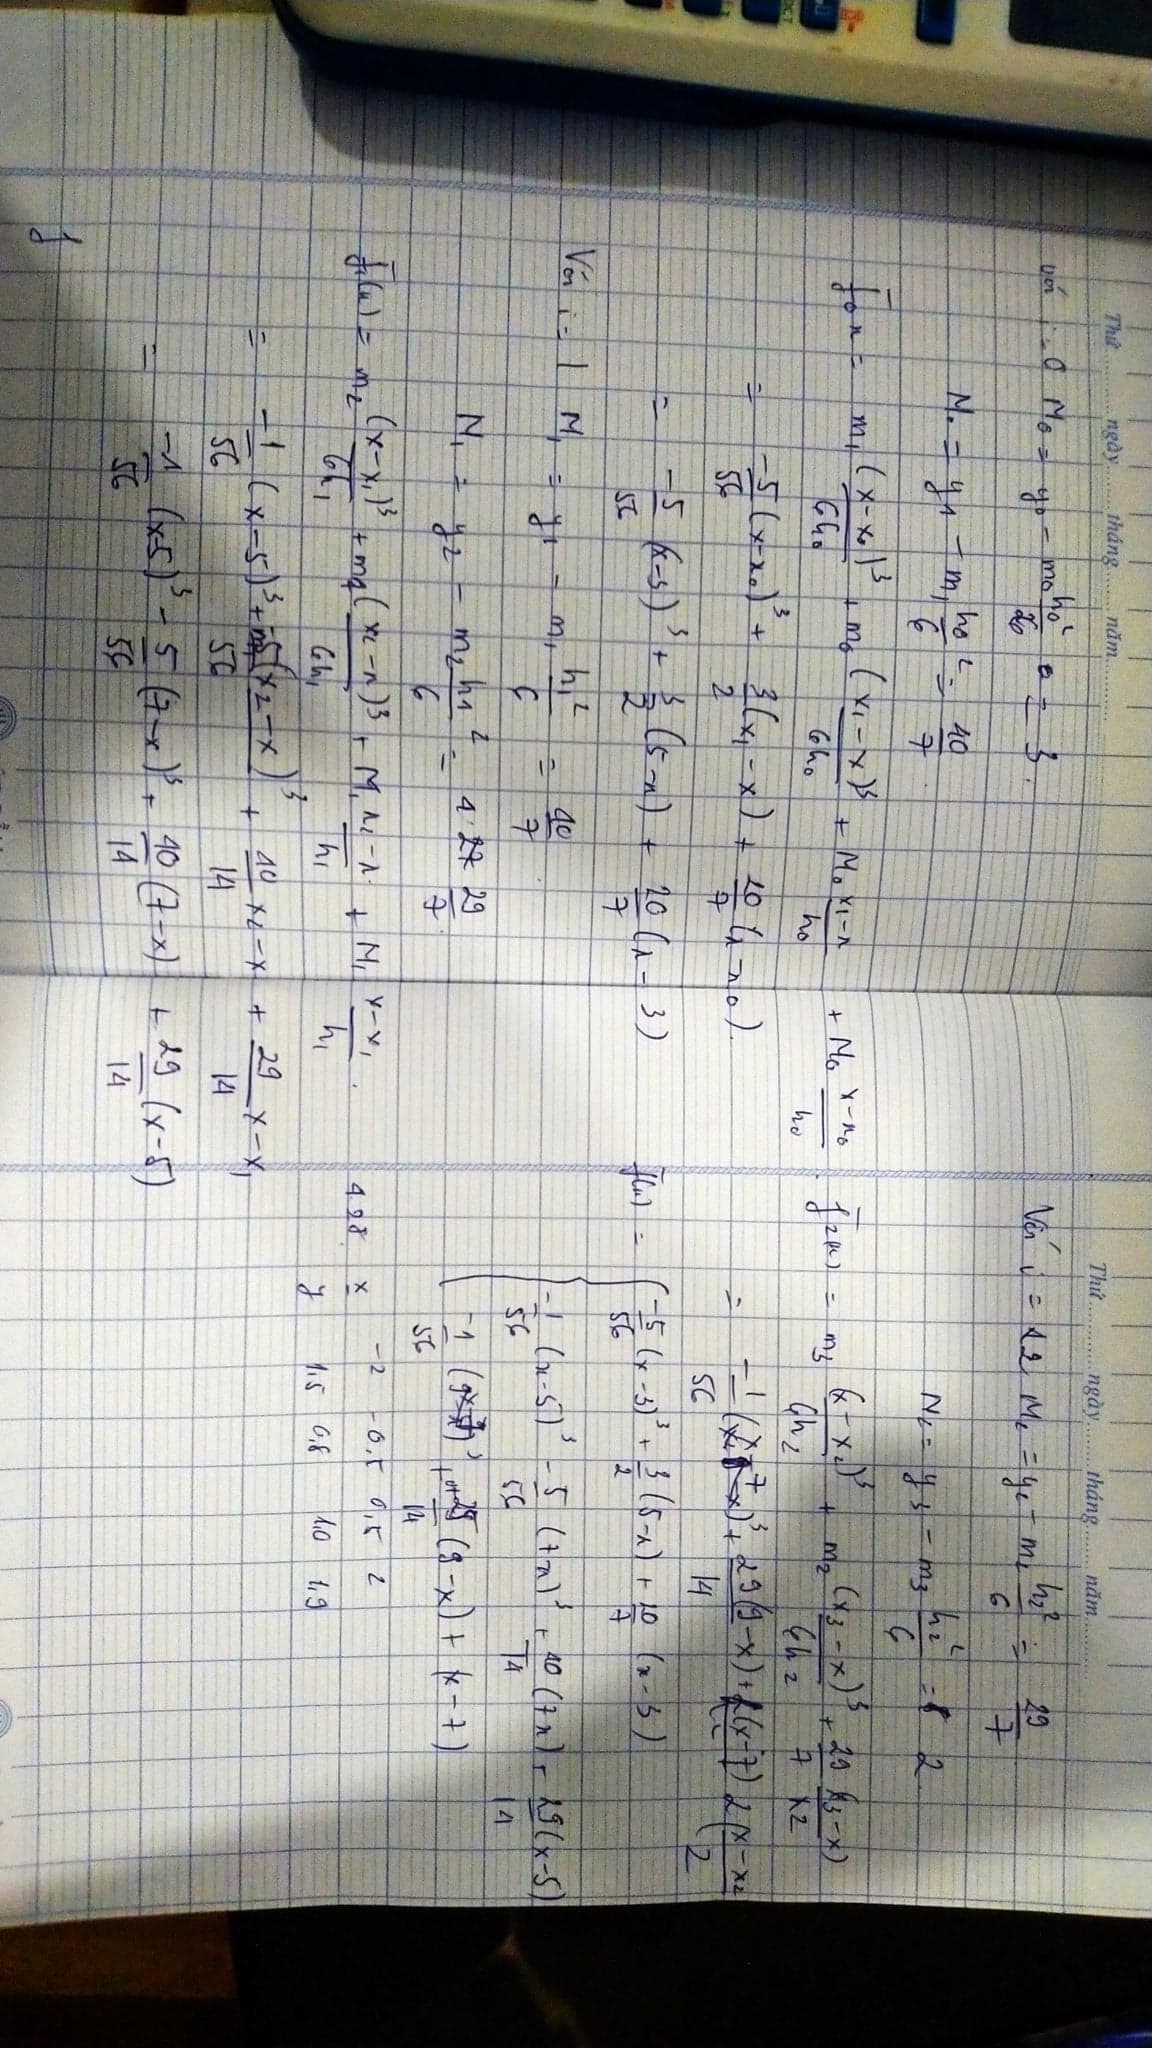 Thứ ........ ngày ........ tháng ........ năm ........
với i = 0 M₀ = y₀ - m₀ h₀²/6 = 3.
N₀ = y₁ - m₁ h₀²/6 = 40/7
f̄₀x = m₁ (x-x₀)³/6h₀ + m₀ (x₁-x)³/6h₀ + M₀ x₁-x/h₀ + N₀ x-x₀/h₀
= -5/56 (x-x₀)³ + 3/2 (x₁-x) + 20/7 (x-x₀).
= -5/56 (x-3)³ + 3/2 (5-x) + 20/7 (x-3)
Với i = 1 M₁ = y₁ - m₁ h₁²/6 = 40/7
N₁ = y₂ - m₂ h₁²/6 = 29/7
f̄₁(x) = m₂ (x-x₁)³/6h₁ + m₁ (x₂-x)³/6h₁ + M₁ x₂-x/h₁ + N₁ x-x₁/h₁.
= -1/56 (x-5)³ + -5/56 (x₂-x)³ + 40/14 x₂-x + 29/14 x-x₁
= -1/56 (x-5)³ - 5/56 (7-x)³ + 40/14 (7-x) + 29/14 (x-5)
Thứ ........ ngày ........ tháng ........ năm ........
Với i = 2 M₂ = y₂ - m₂ h₂²/6 = 29/7
N₂ = y₃ - m₃ h₂²/6 = 2
f̄₂(x) = m₃ (x-x₂)³/6h₂ + m₂ (x₃-x)³/6h₂ + 29/7 (x₃-x)/x2 2(x-x₂)/2
= -1/56 + 29/14 (9-x) + (x-7)
f̄(x) = { -5/56 (x-3)³ + 3/2 (5-x) + 20/7 (x-3)
-1/56 (x-5)³ - 5/56 (7-x)³ + 40/14 (7-x) + 29/14 (x-5)
-1/56 + 29/14 (9-x) + (x-7)
4.28 x -2 -0,5 0,5 2
y 1,5 0,8 10 1,9